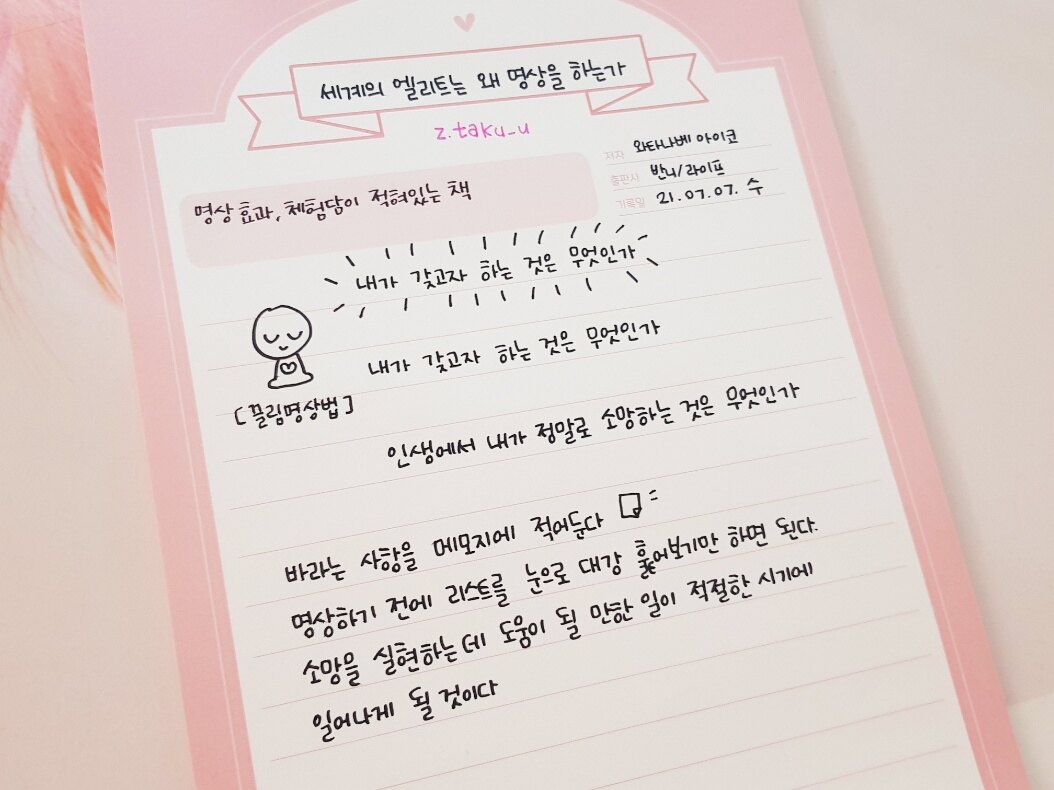 세계의 엘리트는 왜 명상을 하는가
z.taku_u
저자 와타나베 아이코
출판사 반니/라이프
기록일 21.07.07. 수
명상 효과, 체험담이 적혀있는 책
내가 갖고자 하는 것은 무엇인가
내가 갖고자 하는 것은 무엇인가
[끌림명상법]
인생에서 내가 정말로 소망하는 것은 무엇인가
바라는 사항을 메모지에 적어둔다
명상하기 전에 리스트를 눈으로 대강 훑어보기만 하면 된다.
소망을 실현하는데 도움이 될 만한 일이 적절한 시기에
일어나게 될 것이다